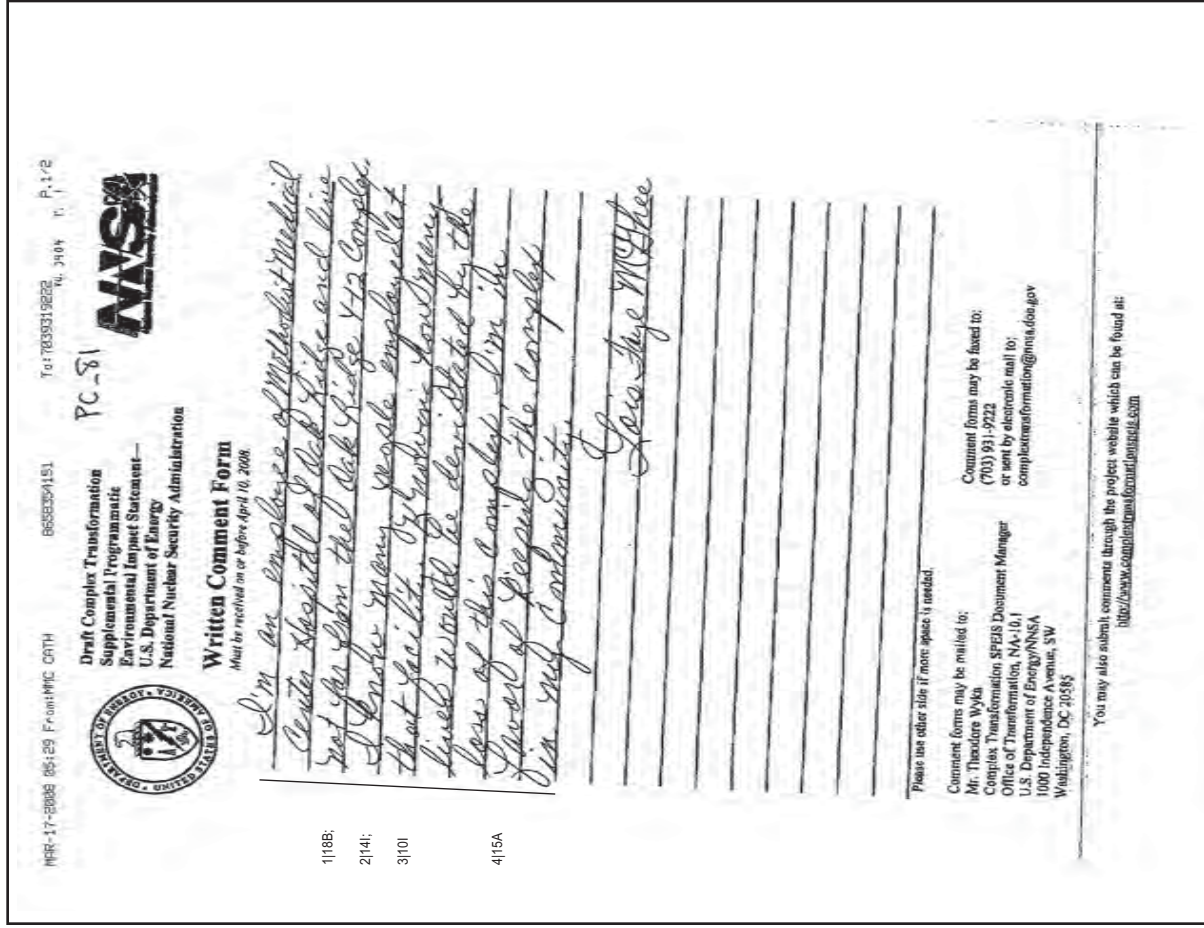 MAR-17-2008 05:29 From:MMC CATH 8658354151 To:7039319222 P.1/2
No. 3404 P. 1
PC-81
Draft Complex Transformation
Supplemental Programmatic
Environmental Impact Statement—
U.S. Department of Energy
National Nuclear Security Administration
DEPARTMENT OF ENERGY
UNITED STATES OF AMERICA
NNSA
Written Comment Form
Must be received on or before April 10, 2008.
I'm an employee of Methodist Medical
Center Hospital of Oak Ridge and live
not far from the Oak Ridge Y-12 Complex.
I know many people employed at
that facility
lives would be devistated by the
loss of this complex. I'm in
favor of keeping the complex
in my community.
Lois Faye McGhee
1|18B;
2|14I;
3|10I
4|15A
Please use other side if more space is needed.
Comment forms may be mailed to:
Mr. Theodore Wyka
Complex Transformation SPEIS Document Manager
Office of Transformation, NA-10.1
U.S. Department of Energy/NNSA
1000 Independence Avenue, SW
Washington, DC 20585
Comment forms may be faxed to:
(703) 931-9222
or sent by electronic mail to:
complextransformation@nnsa.doe.gov
You may also submit comments through the project website which can be found at:
http://www.complextransformationspeis.com